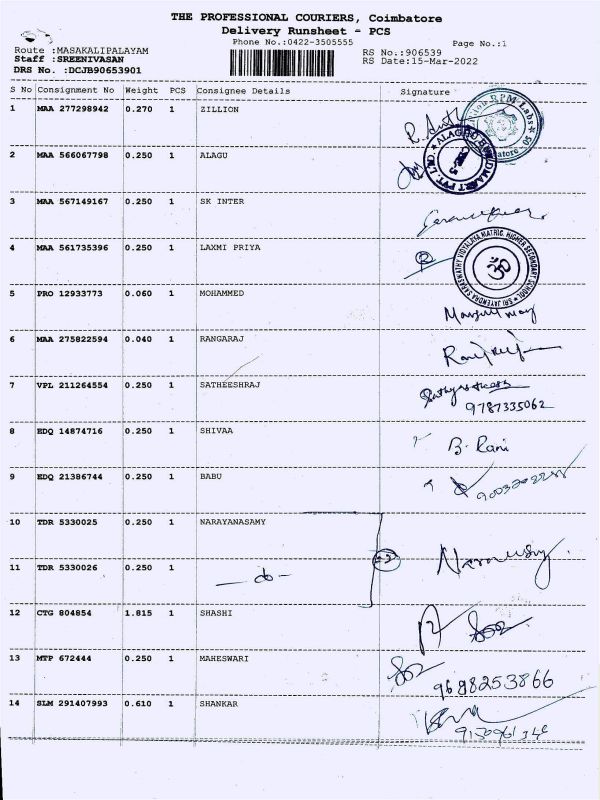 THE PROFESSIONAL COURIERS, Coimbatore
Delivery Runsheet - PCS
Phone No.:0422-3505555 Page No.:1
Route :MASAKALIPALAYAM RS No.:906539
Staff :SREENIVASAN RS Date:15-Mar-2022
DRS No. :DCJB90653901
S No Consignment No Weight PCS Consignee Details Signature
1 MAA 277298942 0.270 1 ZILLION
2 MAA 566067798 0.250 1 ALAGU
3 MAA 567149167 0.250 1 SK INTER
4 MAA 561735396 0.250 1 LAXMI PRIYA
5 PRO 12933773 0.060 1 MOHAMMED
6 MAA 275822594 0.040 1 RANGARAJ
7 VPL 211264554 0.250 1 SATHEESHRAJ
9787335062
8 EDQ 14874716 0.250 1 SHIVAA B. Rani
9 EDQ 21386744 0.250 1 BABU
10 TDR 5330025 0.250 1 NARAYANASAMY
11 TDR 5330026 0.250 1 - do -
12 CTG 804854 1.815 1 SHASHI
13 MTP 672444 0.250 1 MAHESWARI
9698253866
14 SLM 291407993 0.610 1 SHANKAR